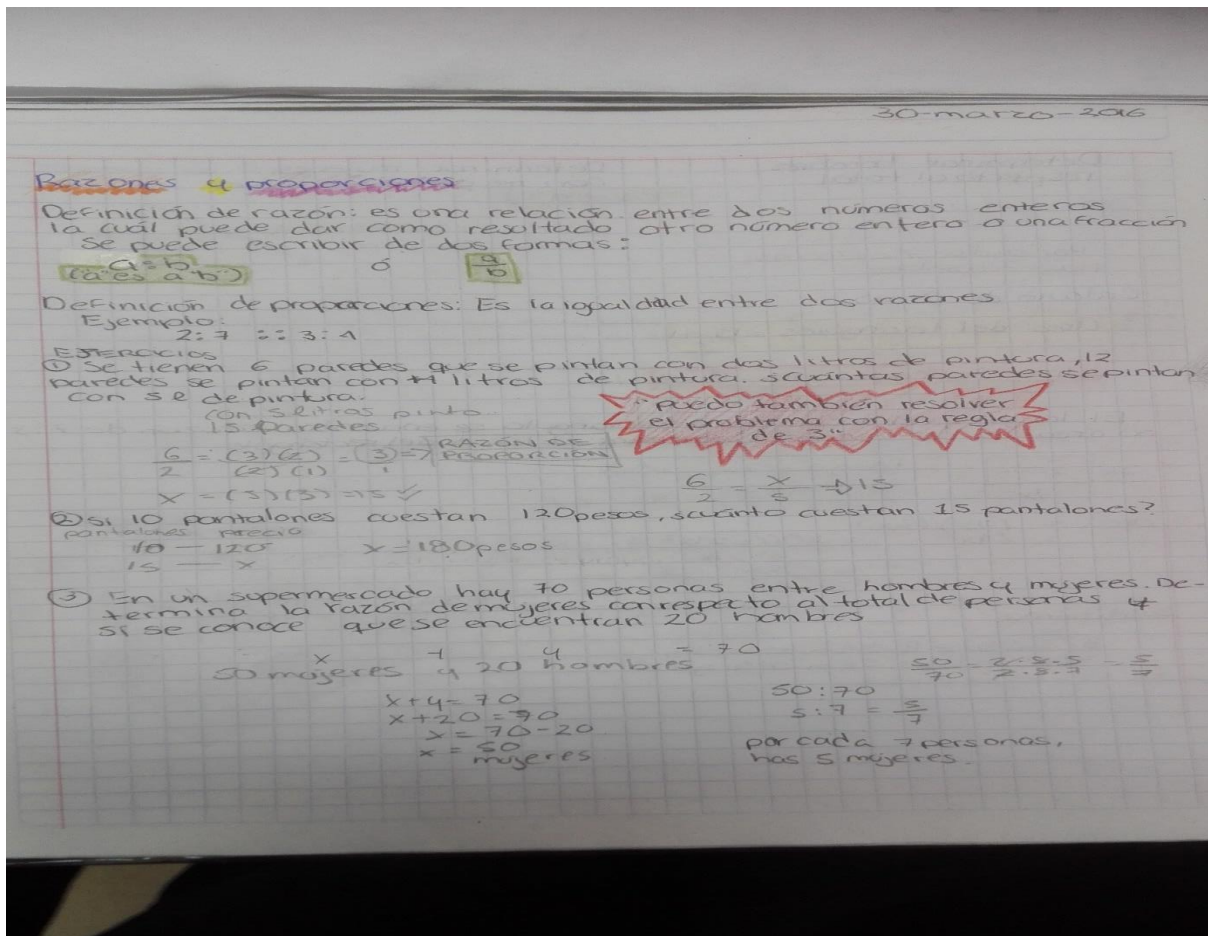 30-marzo-2016
Razones y proporciones
Definición de razón: es una relación entre dos números enteros
la cuál puede dar como resultado otro número entero o una fracción
se puede escribir de dos formas:
a = b ó a/b
(a "es a b")
Definición de proporciones: Es la igualdad entre dos razones
Ejemplo:
2:7 :: 3:4
EJERCICIOS
① Se tienen 6 paredes que se pintan con dos litros de pintura, 12
paredes se pintan con 4 litros de pintura. ¿cuántas paredes se pintan
con 5ℓ de pintura.
con 5 litros pinto
15 paredes
"Puedo también resolver
el problema con la regla
de 3"
6/2 = (3)(2)/(2)(1) = (3)/1 => RAZÓN DE PROPORCIÓN
x = (3)(5) = 15 ✓
6/2 = x/5 → 15
② Si 10 pantalones cuestan 120 pesos, ¿cuánto cuestan 15 pantalones?
pantalones precio
10 — 120 x = 180 pesos
15 — x
③ En un supermercado hay 70 personas entre hombres y mujeres. De-
termina la razón de mujeres con respecto al total de personas y
si se conoce que se encuentran 20 hombres
x + y = 70
50 mujeres y 20 hombres
x + y = 70
x + 20 = 70
x = 70 - 20
x = 50
mujeres
50/70 = 2·5·5/2·5·7 = 5/7
50:70
5:7 = 5/7
por cada 7 personas,
has 5 mujeres.